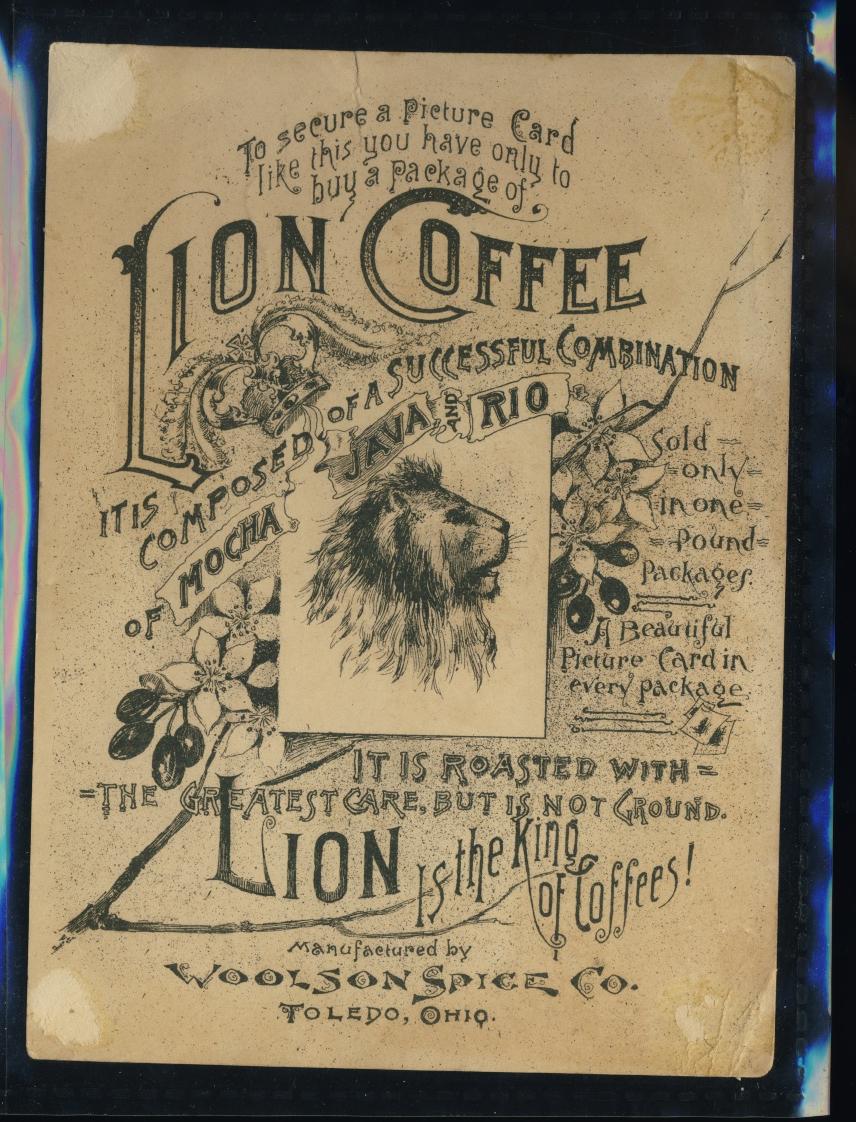 To secure a Picture Card
like this you have only to
buy a Package of
LION COFFEE
IT IS COMPOSED OF A SUCCESSFUL COMBINATION
OF MOCHA JAVA AND RIO
Sold
only
in one
Pound
Packages.
A Beautiful
Picture Card in
every package
IT IS ROASTED WITH =
=THE GREATEST CARE, BUT IS NOT GROUND.
LION Is the King
of Coffees!
Manufactured by
WOOLSON SPICE CO.
TOLEDO, OHIO.